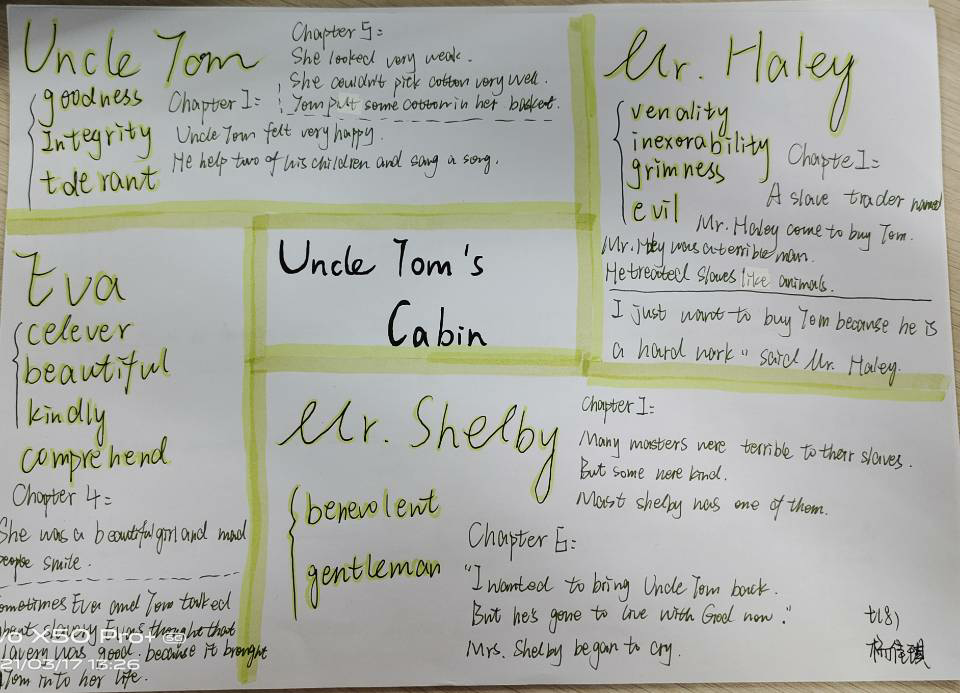 Uncle Tom
goodness
Integrity
tolerant
Chapter 1:
Uncle Tom felt very happy.
He help two of his children and sang a song.
Chapter 5:
She looked very weak.
She couldn't pick cotton very well.
Tom put some cotton in her basket.
Mr. Haley
venality
inexorability
grimness
evil
Chapte 1:
A slave trader named
Mr. Haley come to buy Tom.
Mr. Haley was a terrible man.
He treated slaves like animals.
I just want to buy Tom because he is
a hard work" said Mr. Haley.
Uncle Tom's
Cabin
Eva
celever
beautiful
kindly
comprehend
Chapter 4:
She was a beautiful girl and mad
people smile.
ometimes Eva and Tom talked
bout slavery Eva thought that
lavery was good. because it brought
Tom into her life.
Mr. Shelby
benevolent
gentleman
Chapter 1:
Many masters were terrible to their slaves.
But some were kind.
Mast shelby was one of them.
Chapter 6:
"I wanted to bring Uncle Tom back.
But he's gone to live with God now."
Mrs. Shelby began to cry.
vo X50 Pro+ 5G
21/03/17 13:26